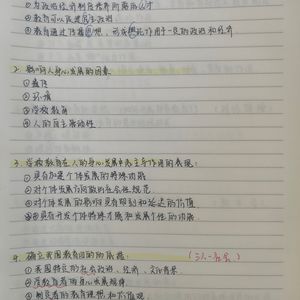 ①为政治经济制度培养所需的人才
②教育可以促进民主政治
③教育通过传播思想,形成舆论作用于一定的政治和经济
2. 影响人身心发展的因素
①遗传
②环境
③学校教育
④人的自主能动性
3. 学校教育在人的身心发展中起主导作用的表现:
①具有加速个体发展的特殊功能
②对个体发展方向做出社会性规范
③对个体发展的影响具有即刻和延迟的价值
④具有开发个体特殊才能和发展个性的功能
4. 确立我国教育目的的依据: (三人一社会)
①我国特定的社会政治、经济、文化背景
②受教育者的身心发展规律
③制定者的教育理想和价值观